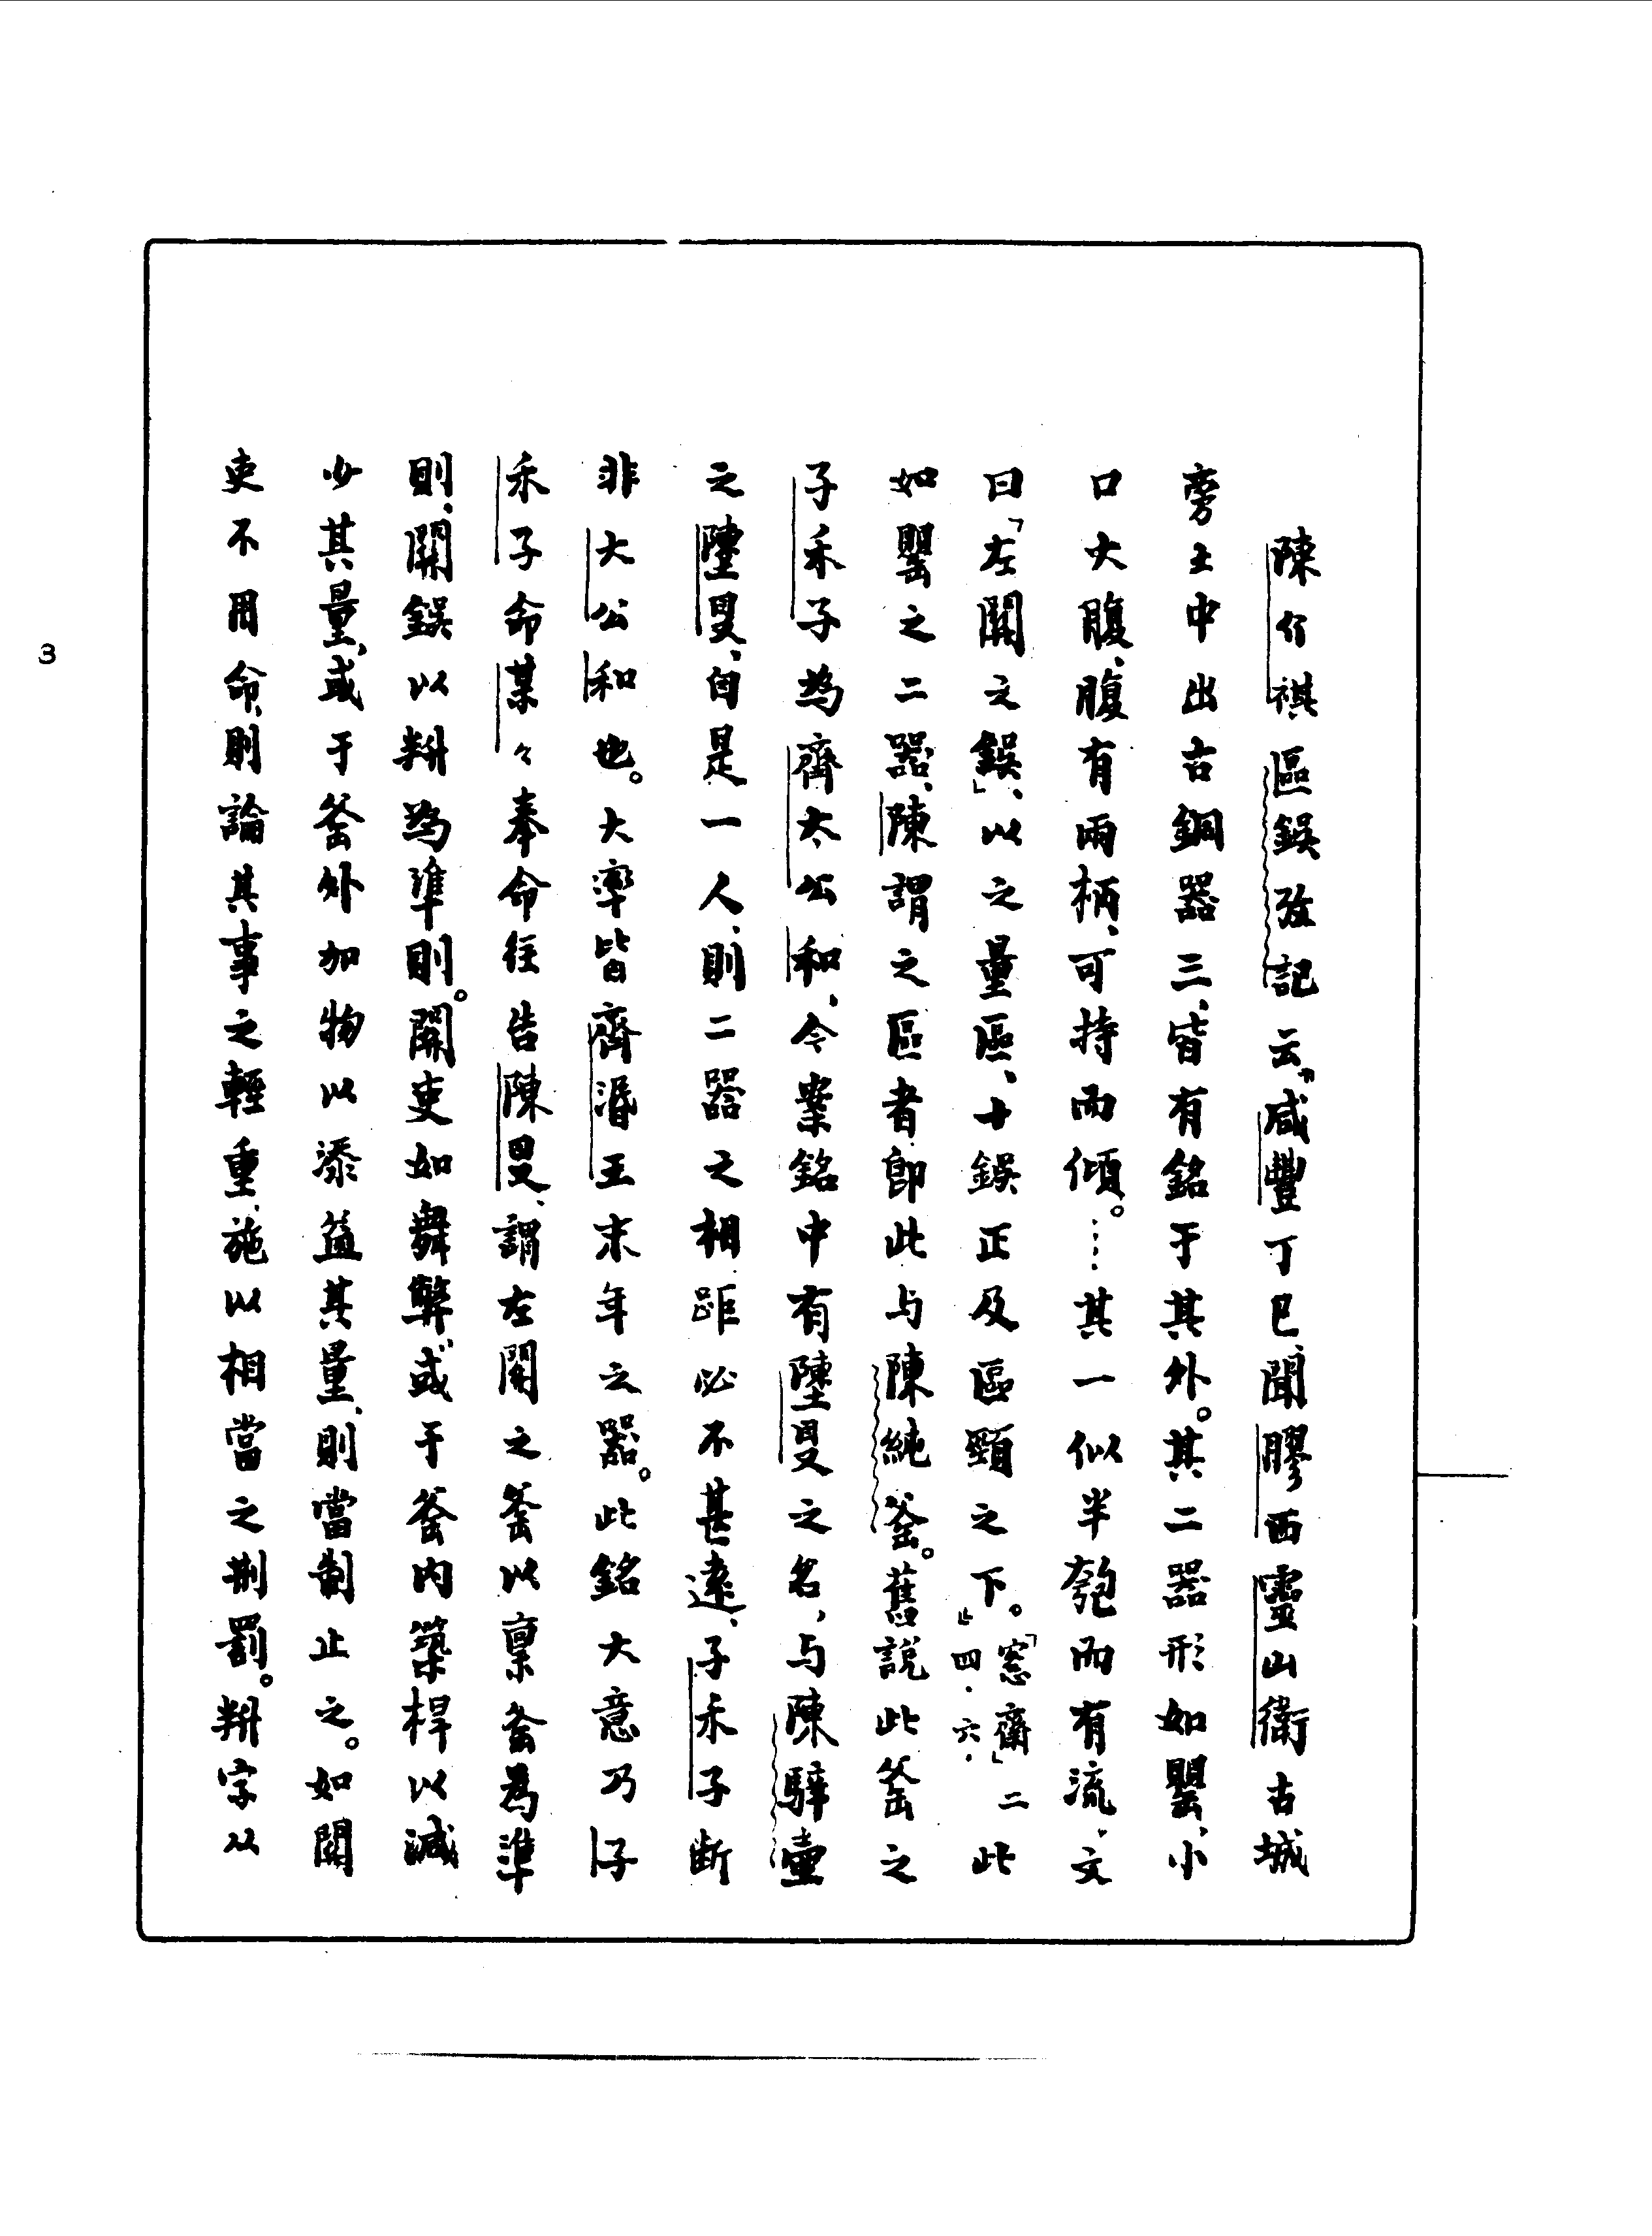 陳介祺區鋘攷記云「咸豐丁巳、聞膠西靈山衛古城
旁土中出古銅器三、皆有銘于其外。其二器形如罌、小
口大腹、腹有兩柄、可持而傾。……其一似半匏而有流、文
曰『左關之鋘』、以之量區、十鋘正及區頸之下。」「窓齋」二四·六·此
如罌之二器、陳謂之區者即此与陳純釜。舊說此釜之
子禾子為齊太公和、今案銘中有墬𠭯之名、与陳騂壷
之墬𠭯、自是一人、則二器之相距必不甚遠、子禾子断
非大公和也。大率皆齊湣王末年之器。此銘大意乃子
禾子命某々奉命往告陳𠭯、謂左関之釜以稟釜為準
則、關鋘以𣂁為準則。關吏如舞弊、或于釜內築桿以減
少其量、或于釜外加物以添益其量、則當制止之。如關
吏不用命、則論其事之輕重、施以相當之刑罰。𣂁字从
3